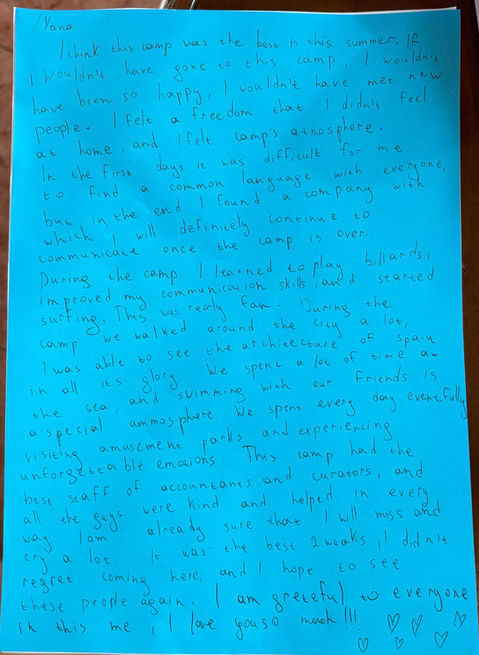 /Yana
I think this camp was the best in this summer. If
I wouldn't have gone to this camp, I wouldn't
have been so happy, I wouldn't have met new
people. I felt a freedom that I didn't feel
at home, and I felt camp's atmosphere.
In the first days it was difficult for me
to find a common language with everyone,
but in the end I found a company with
which I will definitely continue to
communicate once the camp is over.
During the camp I learned to play billards,
improved my communication skills, and started
surfing. This was really fun. During the
camp we walked around the city a lot,
I was able to see the architecture of spain
in all its glory. We spent a lot of time at
the sea, and swimming with our friends is
a special ammosphere. We spent every day eventfully
visiting amusement parks and experiencing
unforgettable emotions. This camp had the
best staff of accountants and curators, and
all the guys were kind and helped in every
way I am already sure that I will miss and
cry a lot. It was the best 2 weaks, I didn't
regret coming here, and I hope to see
these people again. I am grateful to everyone
in this me, I love you so much!!!